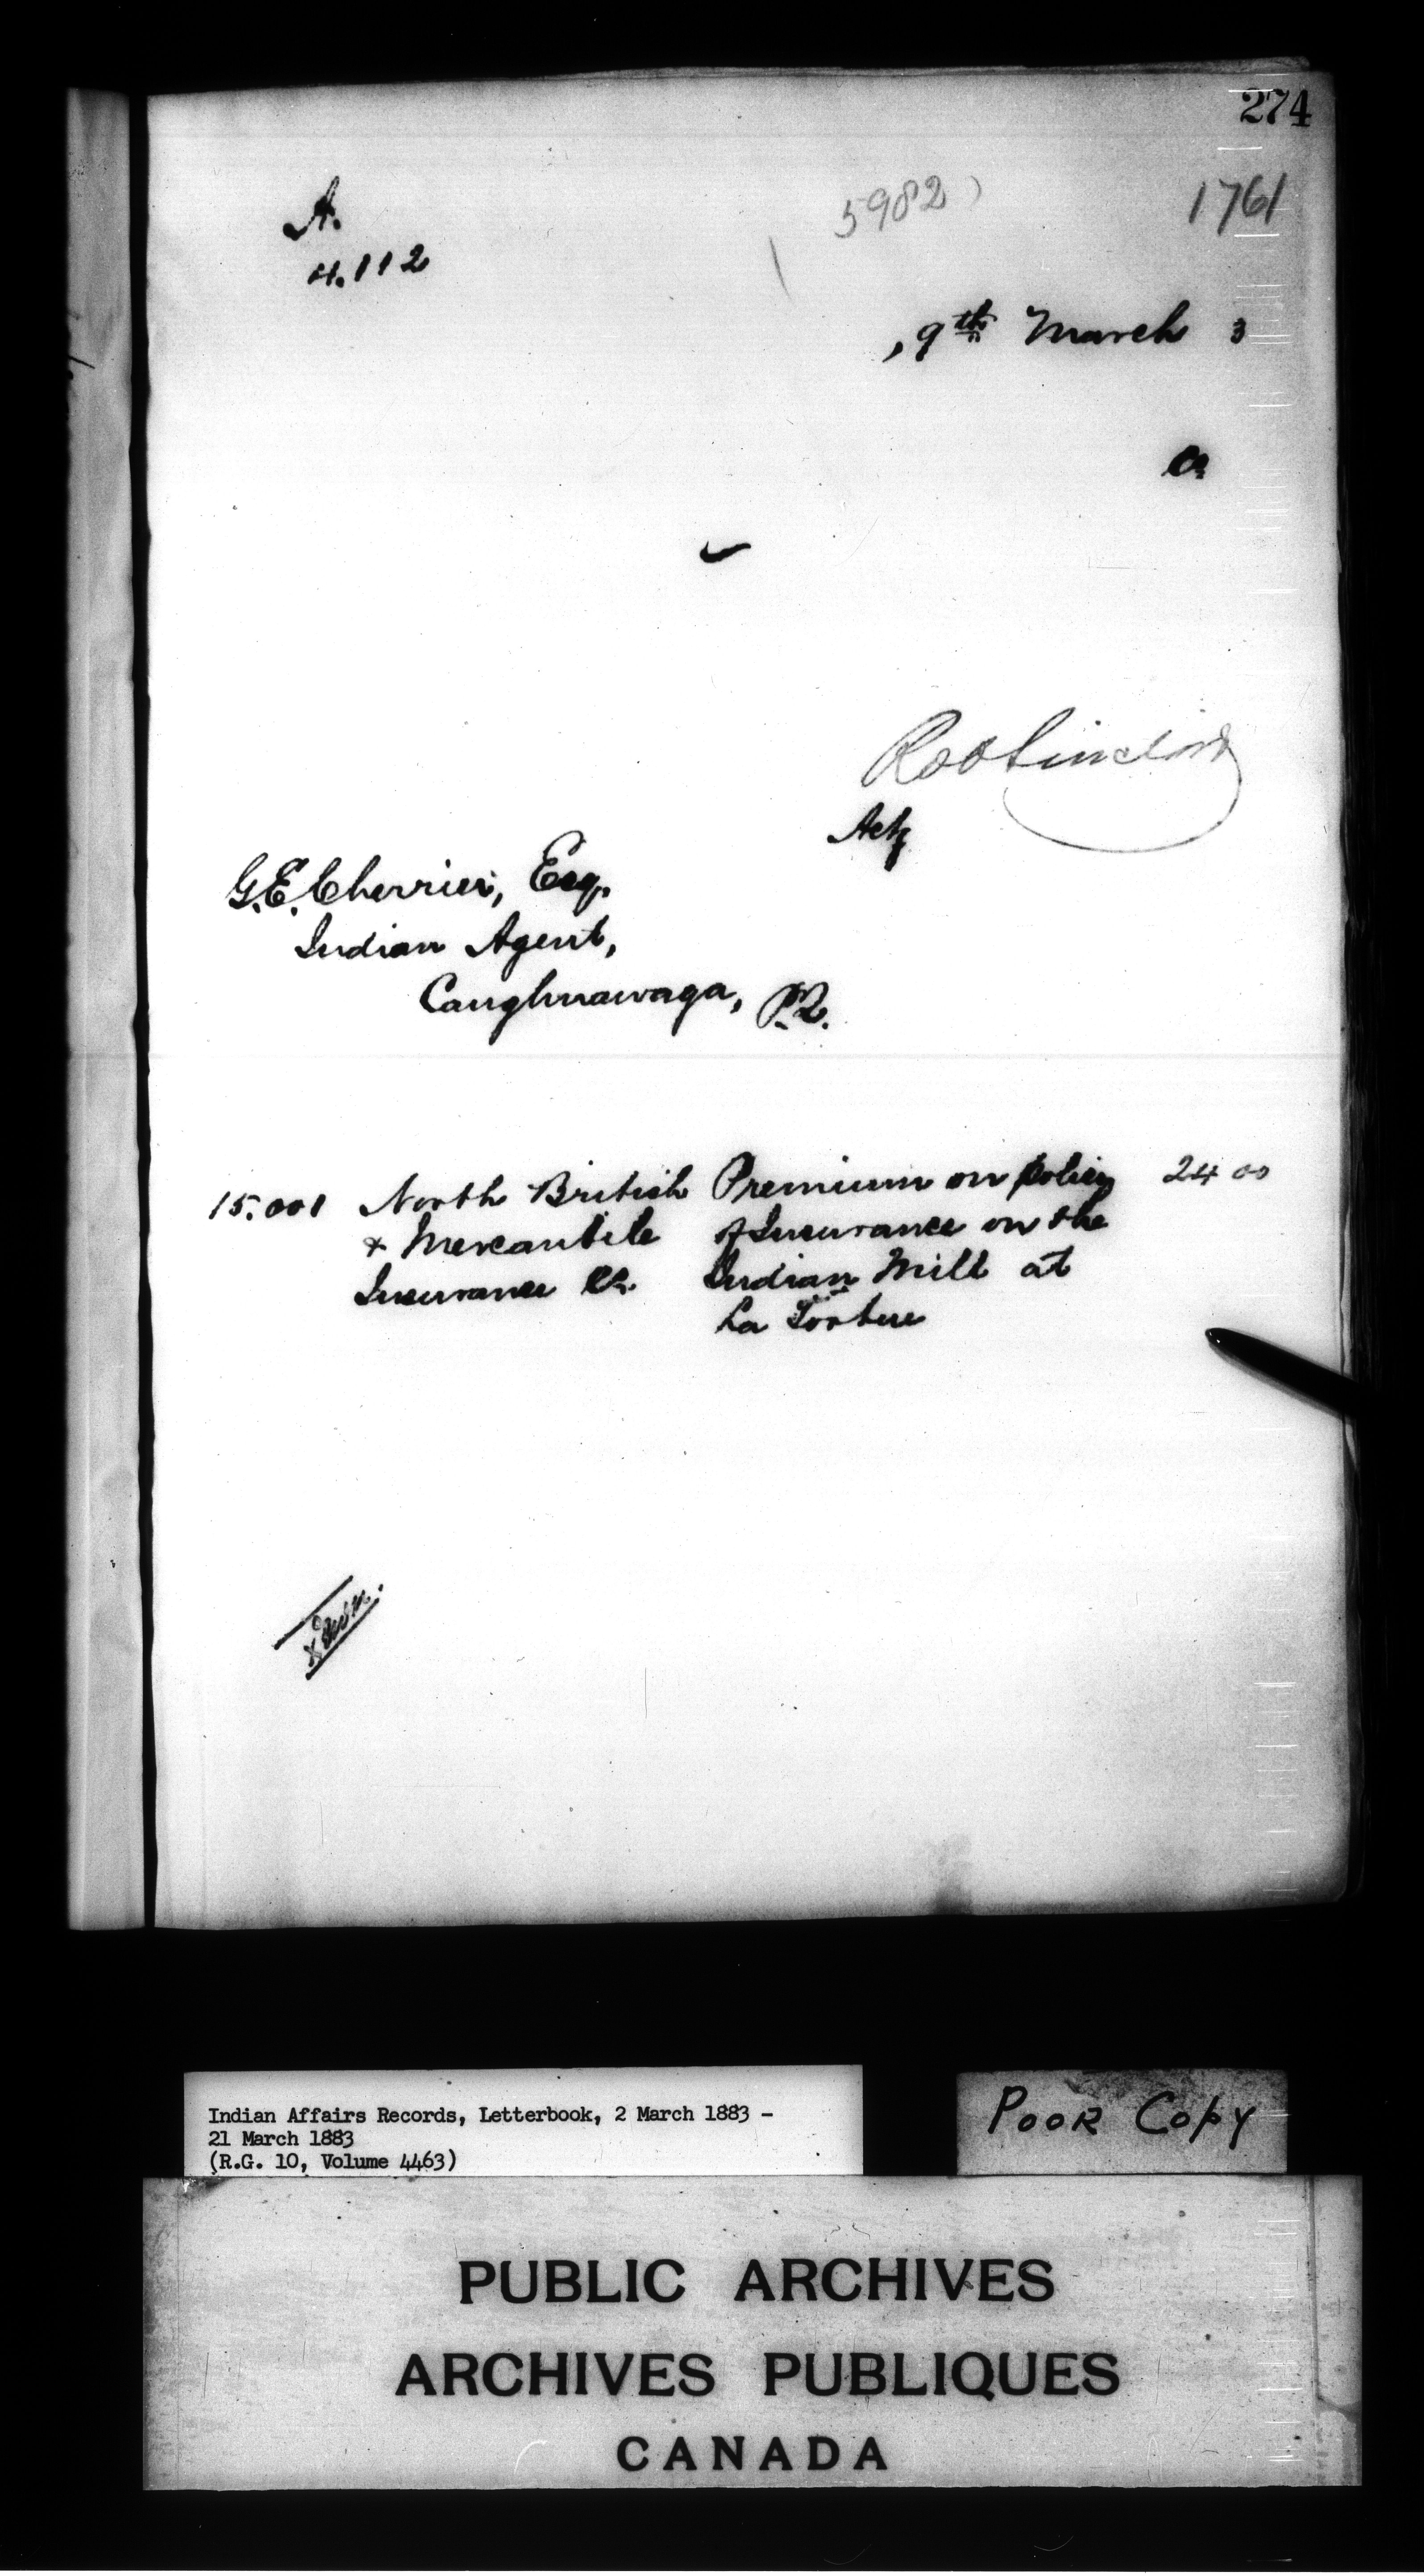 274
5982
1761
A.
4.112
, 9th March 3
a
Act'g
G.E. Cherrier, Esq.
Indian Agent,
Caughnawaga, P.Q.
15.001 North British Premium on policy 24 00
& Mercantile of Insurance on the
Insurance Co. Indian Mill at
La Tortue
Indian Affairs Records, Letterbook, 2 March 1883 -
21 March 1883
(R.G. 10, Volume 4463)
POOR COPY
PUBLIC ARCHIVES
ARCHIVES PUBLIQUES
CANADA